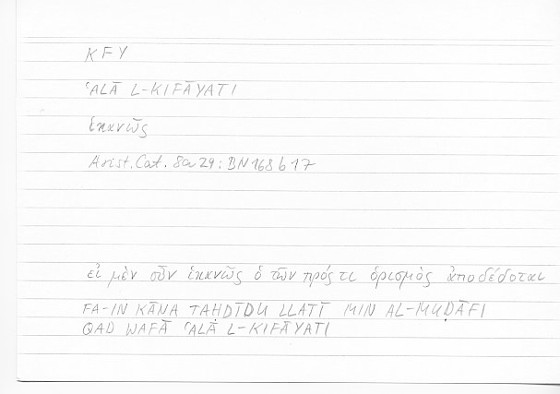 KFY
ʿALĀ L-KIFĀYATI
ἱκανῶς
Arist. Cat. 8a29 : BN 168b17
εἰ μὲν οὖν ἱκανῶς ὁ τῶν πρός τι ὁρισμὸς ἀποδέδοται
FA-IN KĀNA TAḤDĪDU LLATĪ MIN AL-MUḌĀFI
QAD WAFĀ ʿALĀ L-KIFĀYATI